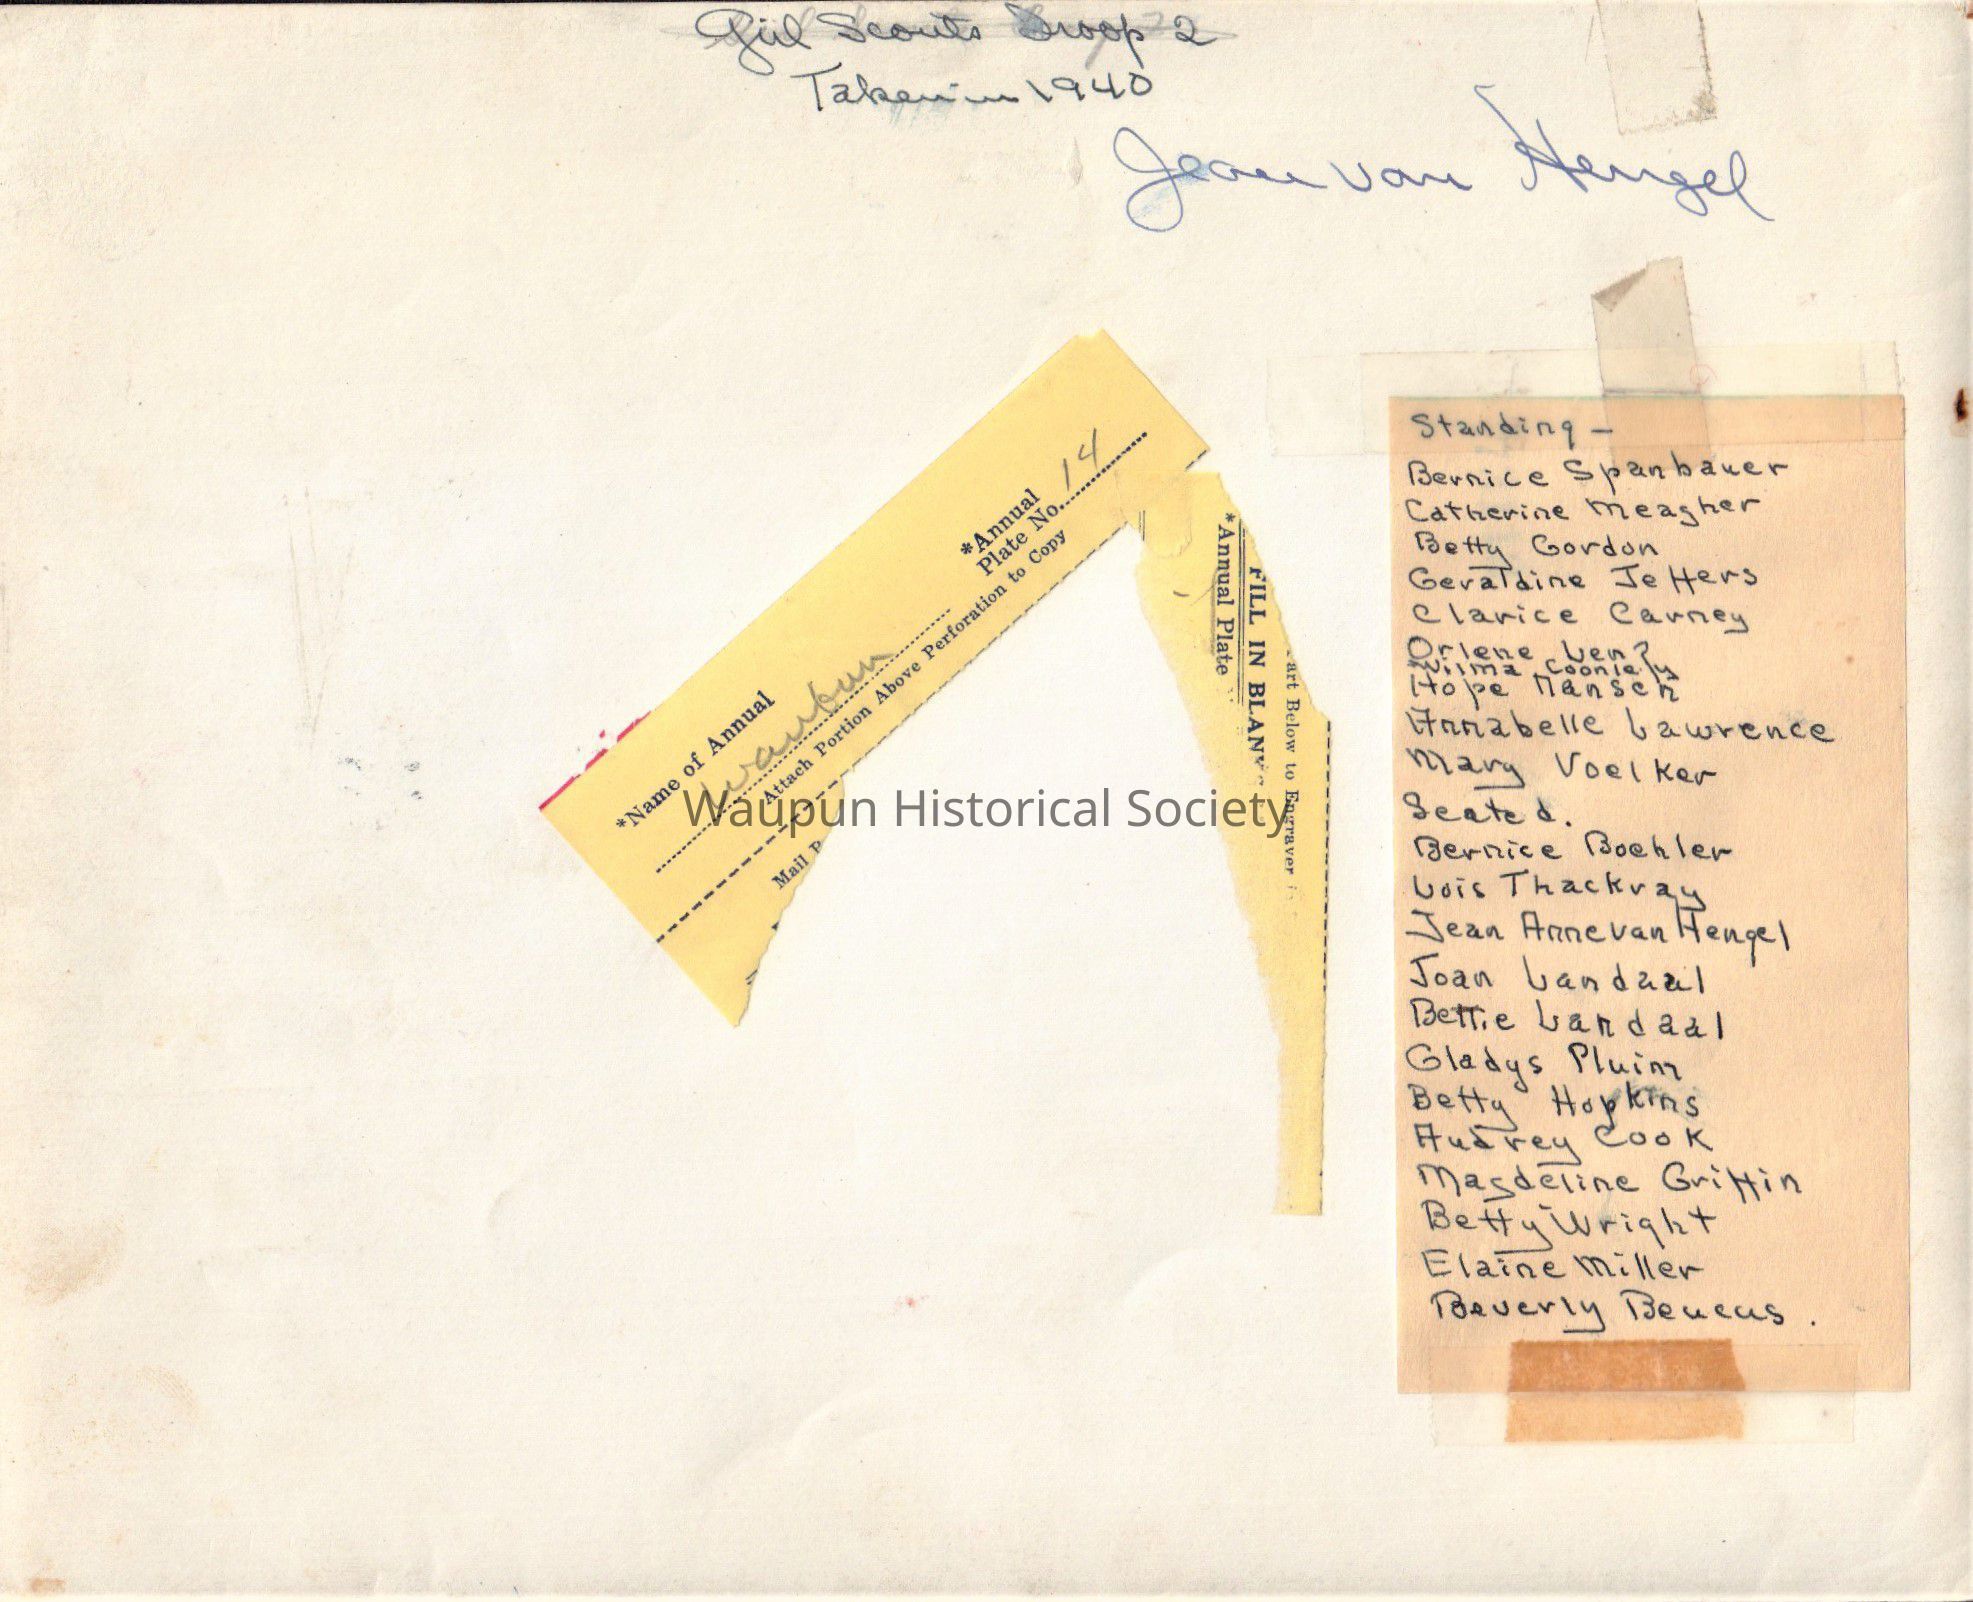 Girl Scouts Troop 2
Taken in 1940
Jean van Hengel
*Annual
Plate No. 14
*Name of Annual
Waupun
Attach Portion Above Perforation to Copy
Mail P
*Annual Plate
FILL IN BLANK
art Below to Engraver
Waupun Historical Society
Standing –
Bernice Spanbauer
Catherine Meagher
Betty Gordon
Geraldine Jeffers
Clarice Carney
Orlene
Wilma
Hope Hansen
Annabelle Lawrence
Mary Voelker
Seated.
Bernice Boehler
Lois Thackray
Jean Anne van Hengel
Joan Landaal
Bettie Landaal
Gladys Pluim
Betty Hopkins
Audrey Cook
Magdeline Griffin
Betty Wright
Elaine Miller
Beverly